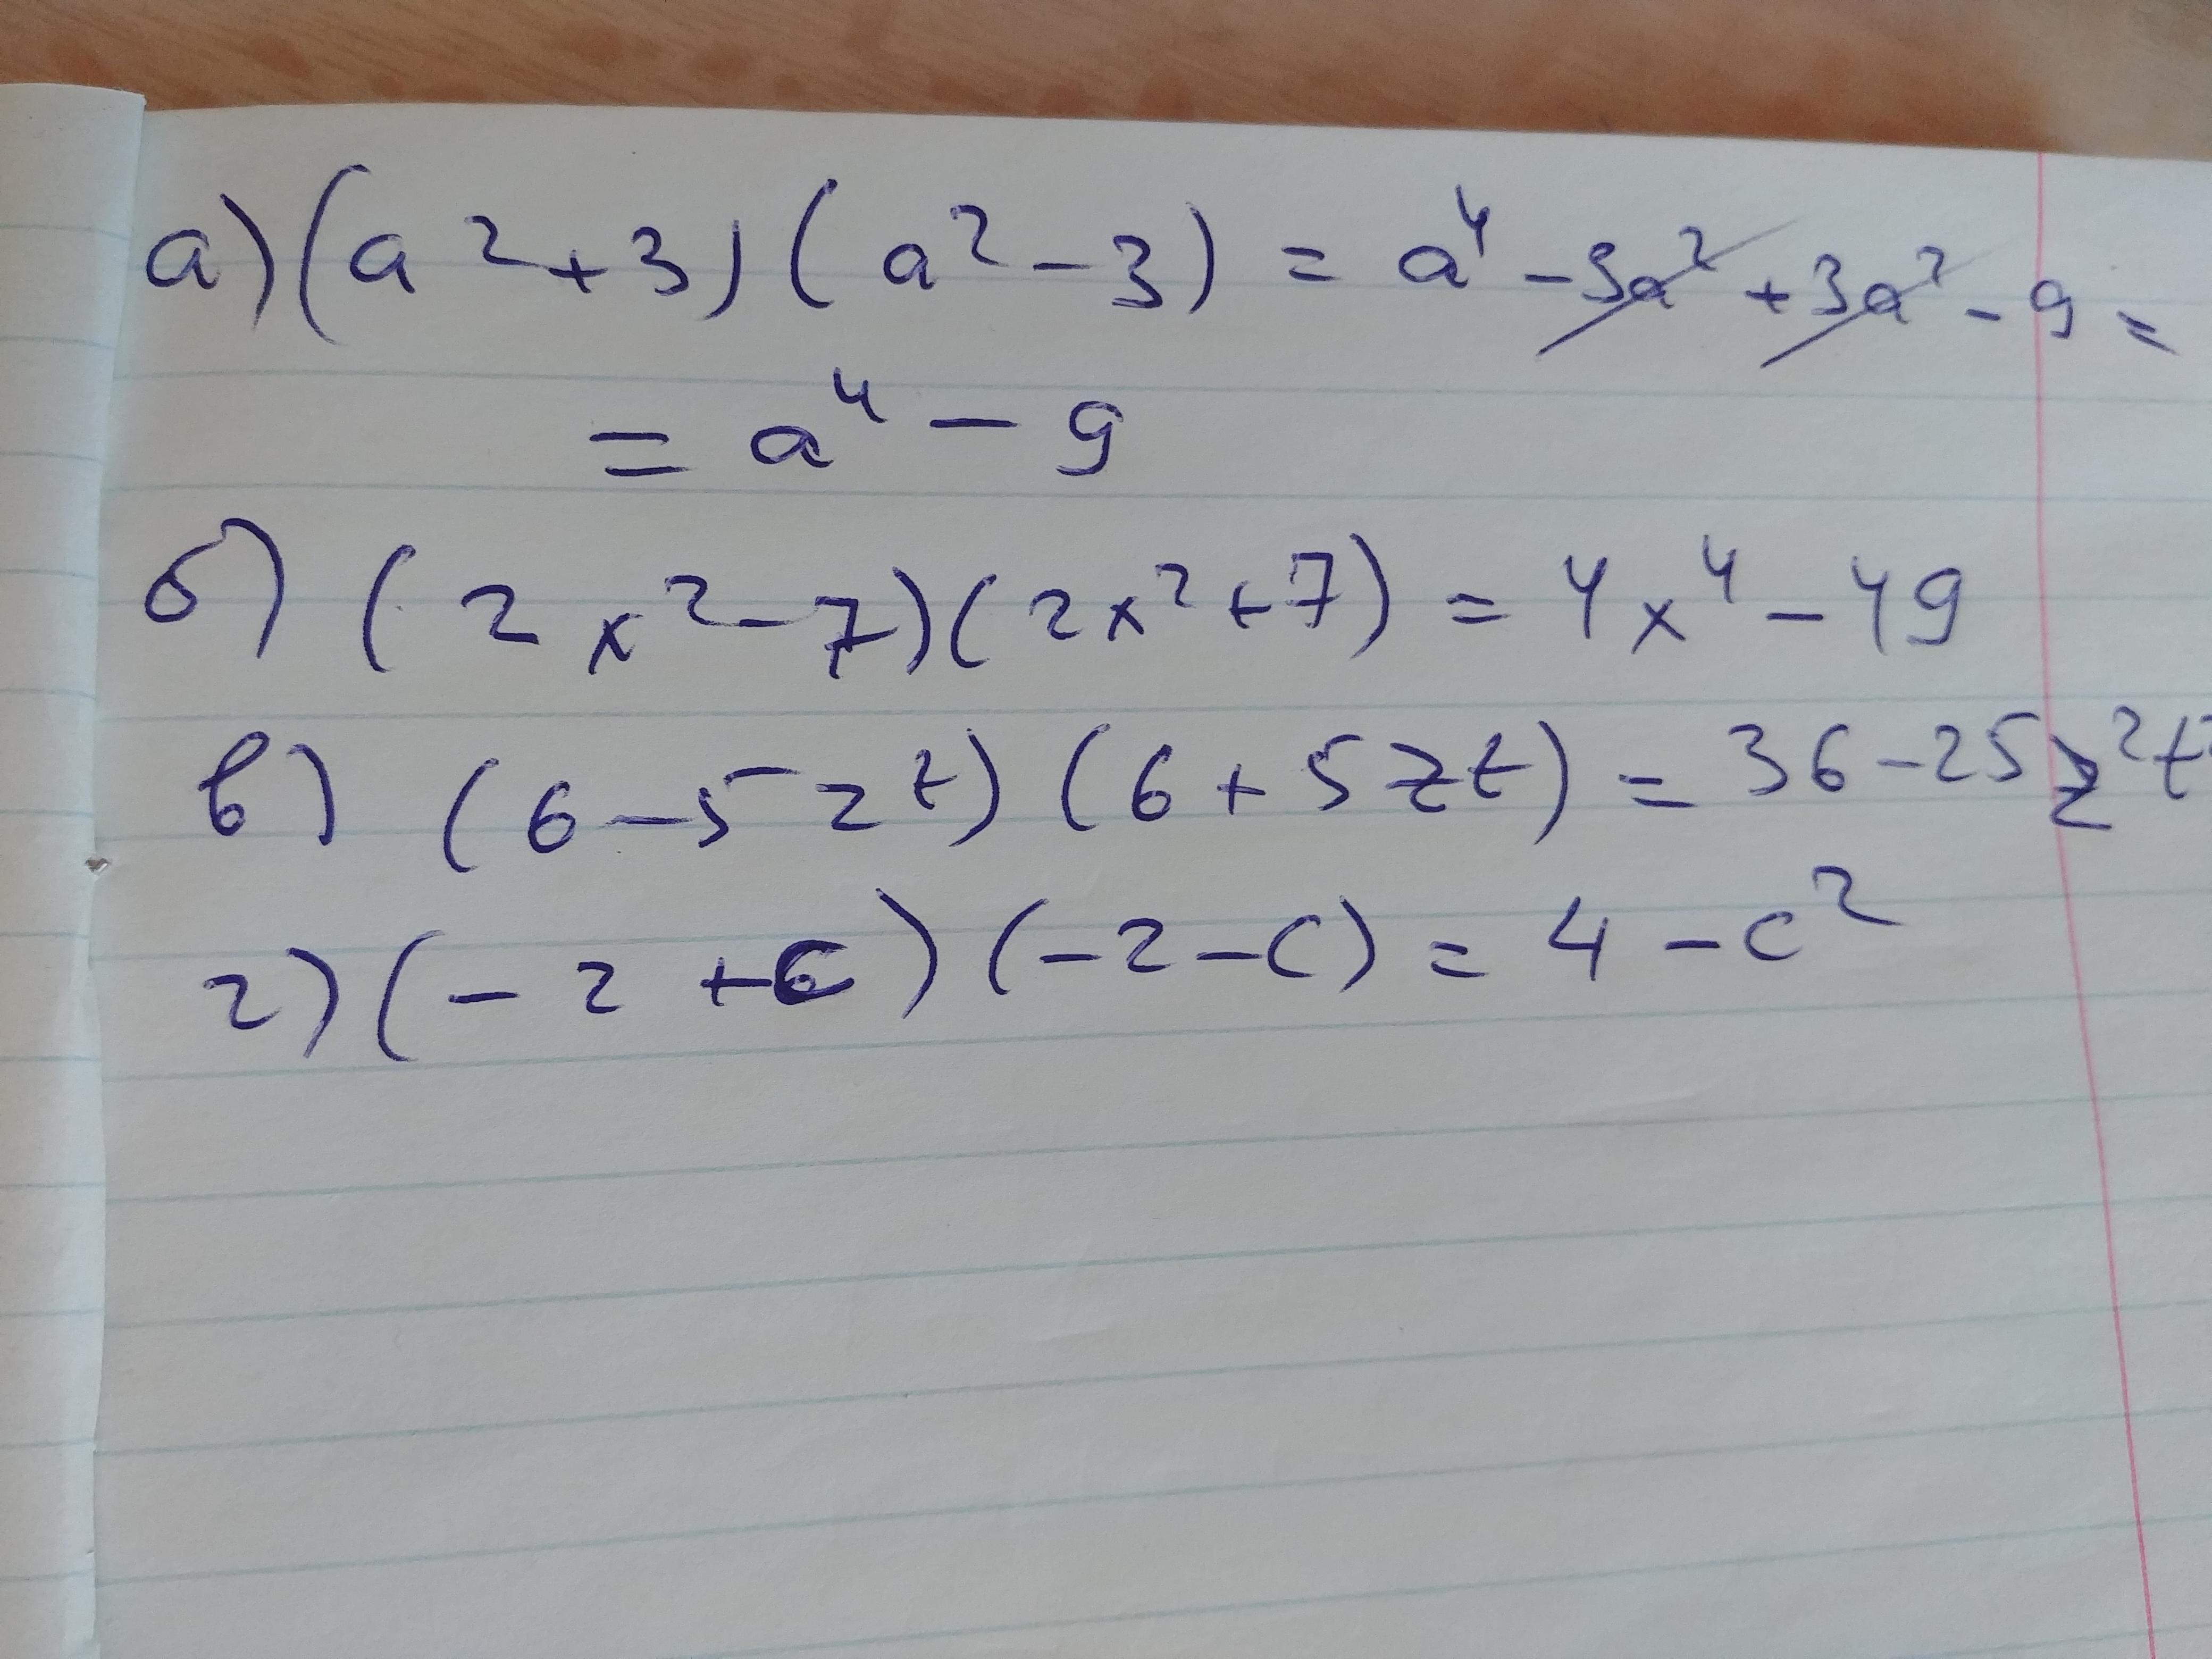 а) (a² + 3) (a² - 3) = a⁴ - 3a² + 3a² - 9 =
= a⁴ - 9
б) (2x² - 7)(2x² + 7) = 4x⁴ - 49
в) (6 - 5zt) (6 + 5zt) = 36 - 25z²t²
г) (-2 + c) (-2 - c) = 4 - c²